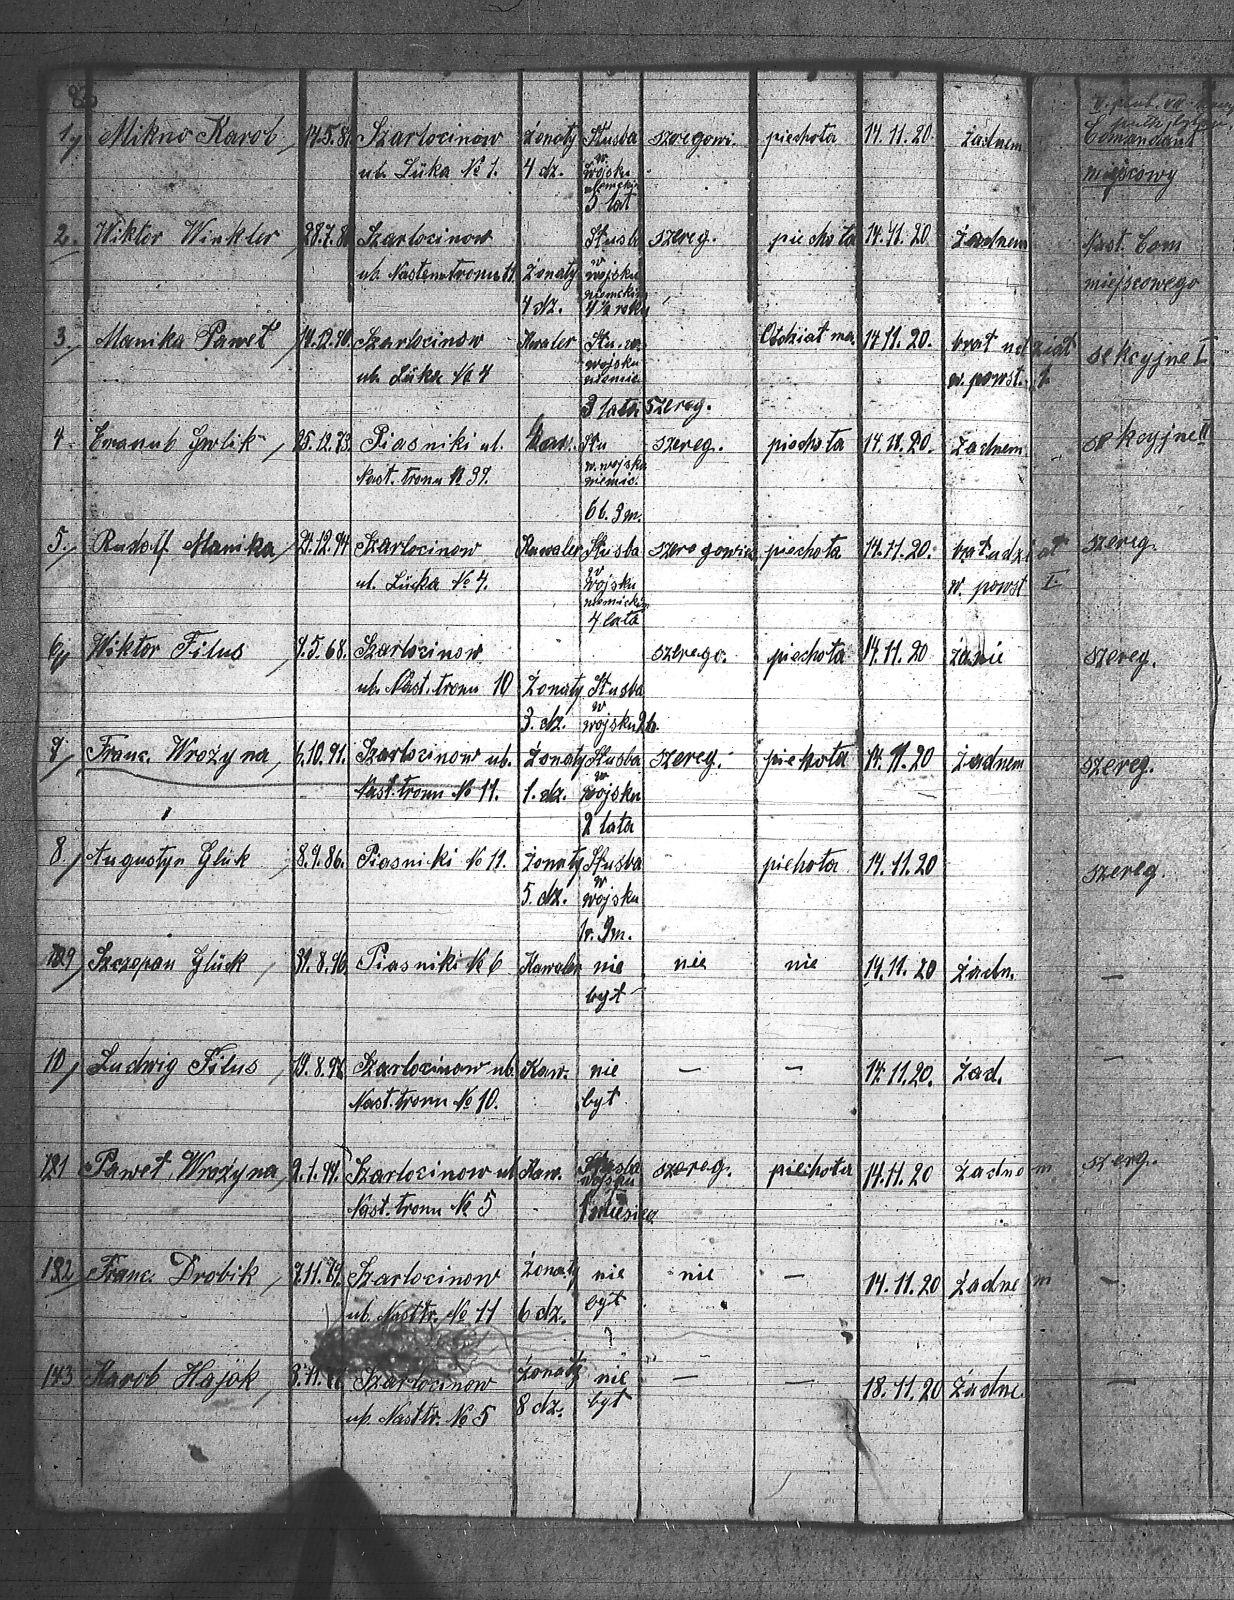 1, Mikno Karob, 14.5.8 Szarlocinow Żonaty Służba szeregowi. piechota 14.11.20 żadnem Comandant
ul. Lüka № 1. 4 dz. w wojsk. miejscowy
5 lat
2. Wiktor Winkler, 28.7.8 Szarlocinow Służb szereg. piechota 14.11.20. żadnem Nast. Com
ul. Nastemtronu 11 Żonaty w wojsku miejscowego
4 dz. niemickim 4½ roku
3, Manika Paweł, 14.12.90 Szarlocinow Kawaler Słu. w Oddział ma. 14.11.20. brat udział sekcyjne I
ul. Lüka № 4 wojsku niemic. w powst. I.
3 lata szereg.
4. Gorlik, 25.12.73. Piasniki ul. Kaw. Słu szereg. piechota 14.11.20. żadnem sekcyjne II
Nast. tronu № 37. w wojsku niemic.
6 l. 3 m.
5, Rudolf Manika, 21.12.94 Szarlocinow Kawaler Służba szeregowiec piechota 14.11.20. brat udział szereg.
ul. Lücka № 4. w wojsku niemickim w powst I.
4 lata
6, Wiktor Filus, 9.5.68. Szarlocinow szerego. piechota 14.11.20 żadnie szereg.
ul. Nast. tronu 10 Żonaty Służba
3. dz. w wojsku 2 l.
7, Franc. Wrożyna, 6.10.91. Szarlocinow ul. Żonaty Służba szereg. piekota 14.11.20 żadnem szereg.
Nast. tronu № 11. 1. dz. w wojsku
2 lata
8, Augustyn Glük, 8.9.86. Piasniki № 11. Żonaty Służba piehota 14.11.20 szereg.
5. dz. w wojsku
1 r. 9 m.
9, Szczepan Glück, 31.8.96 Piasniki № 6 Kawaler nie nie nie 14.11.20 żadn. —
był
10, Ludwig Filus, 19.8.97 Szarlocinow ul. Kaw. nie — — 14.11.20. żad. —
Nast. tronu № 10. był
11 Paweł Wrożyna, 2.1.99. Szarlocinow ul Kaw. Służba szereg. piechota 14.11.20 żadnem szerg.
Nast. tronu № 5 wojsku 1 miesiąc
12 Franc. Drobik, 7.11.79. Szarlocinow Żonaty nie nie — 14.11.20 żadnem —
ul. Nasttr. № 11 6 dz. był
13 Karob Hajok, 3.11. Szarlocinow Żonaty nie — — 18.11.20 żadne. —
ul. Nasttr. № 5 8 dz. był